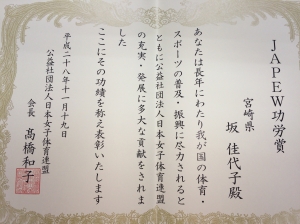 JAPEW功労賞
宮崎県
坂 佳代子殿
あなたは長年にわたり我が国の体育・
スポーツの普及・振興に尽力されると
ともに公益社団法人日本女子体育連盟
の充実・発展に多大な貢献をされま
した
ここにその功績を称え表彰いたします
平成二十八年十一月十九日
公益社団法人日本女子体育連盟
会長 髙橋和子